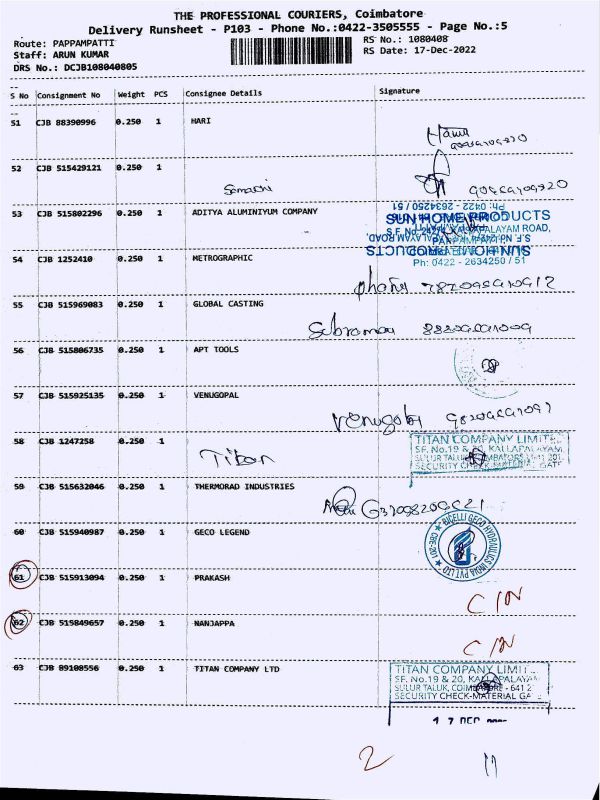 THE PROFESSIONAL COURIERS, Coimbatore
Delivery Runsheet - P103 - Phone No.:0422-3505555 - Page No.:5
Route: PAPPAMPATTI RS No.: 1080408
Staff: ARUN KUMAR RS Date: 17-Dec-2022
DRS No.: DCJB108040805
S No Consignment No Weight PCS Consignee Details Signature
51 CJB 88390996 0.250 1 HARI
52 CJB 515429121 0.250 1
53 CJB 515802296 0.250 1 ADITYA ALUMINIYUM COMPANY
SUN HOME PRODUCTS
54 CJB 1252410 0.250 1 METROGRAPHIC
Ph: 0422 - 2634250 / 51
55 CJB 515969083 0.250 1 GLOBAL CASTING
56 CJB 515806735 0.250 1 APT TOOLS
57 CJB 515925135 0.250 1 VENUGOPAL
Venugobal
58 CJB 1247258 0.250 1 Titan
TITAN COMPANY LIMITED
SF. No.19 & 20, KALLAPALAYAM
SECURITY CHECK-MATERIAL GATE
59 CJB 515632046 0.250 1 THERMORAD INDUSTRIES
60 CJB 515940987 0.250 1 GECO LEGEND
BICELLI GECO HYDRAULICS INDIA PVT LTD
61 CJB 515913094 0.250 1 PRAKASH
C/N
62 CJB 515849657 0.250 1 NANJAPPA
C/N
63 CJB 89108556 0.250 1 TITAN COMPANY LTD
TITAN COMPANY LIMIT
SF. No.19 & 20, KALLAPALAYAM
SULUR TALUK, COIMBATORE - 641 2
SECURITY CHECK-MATERIAL GA
17 DEC
2 11